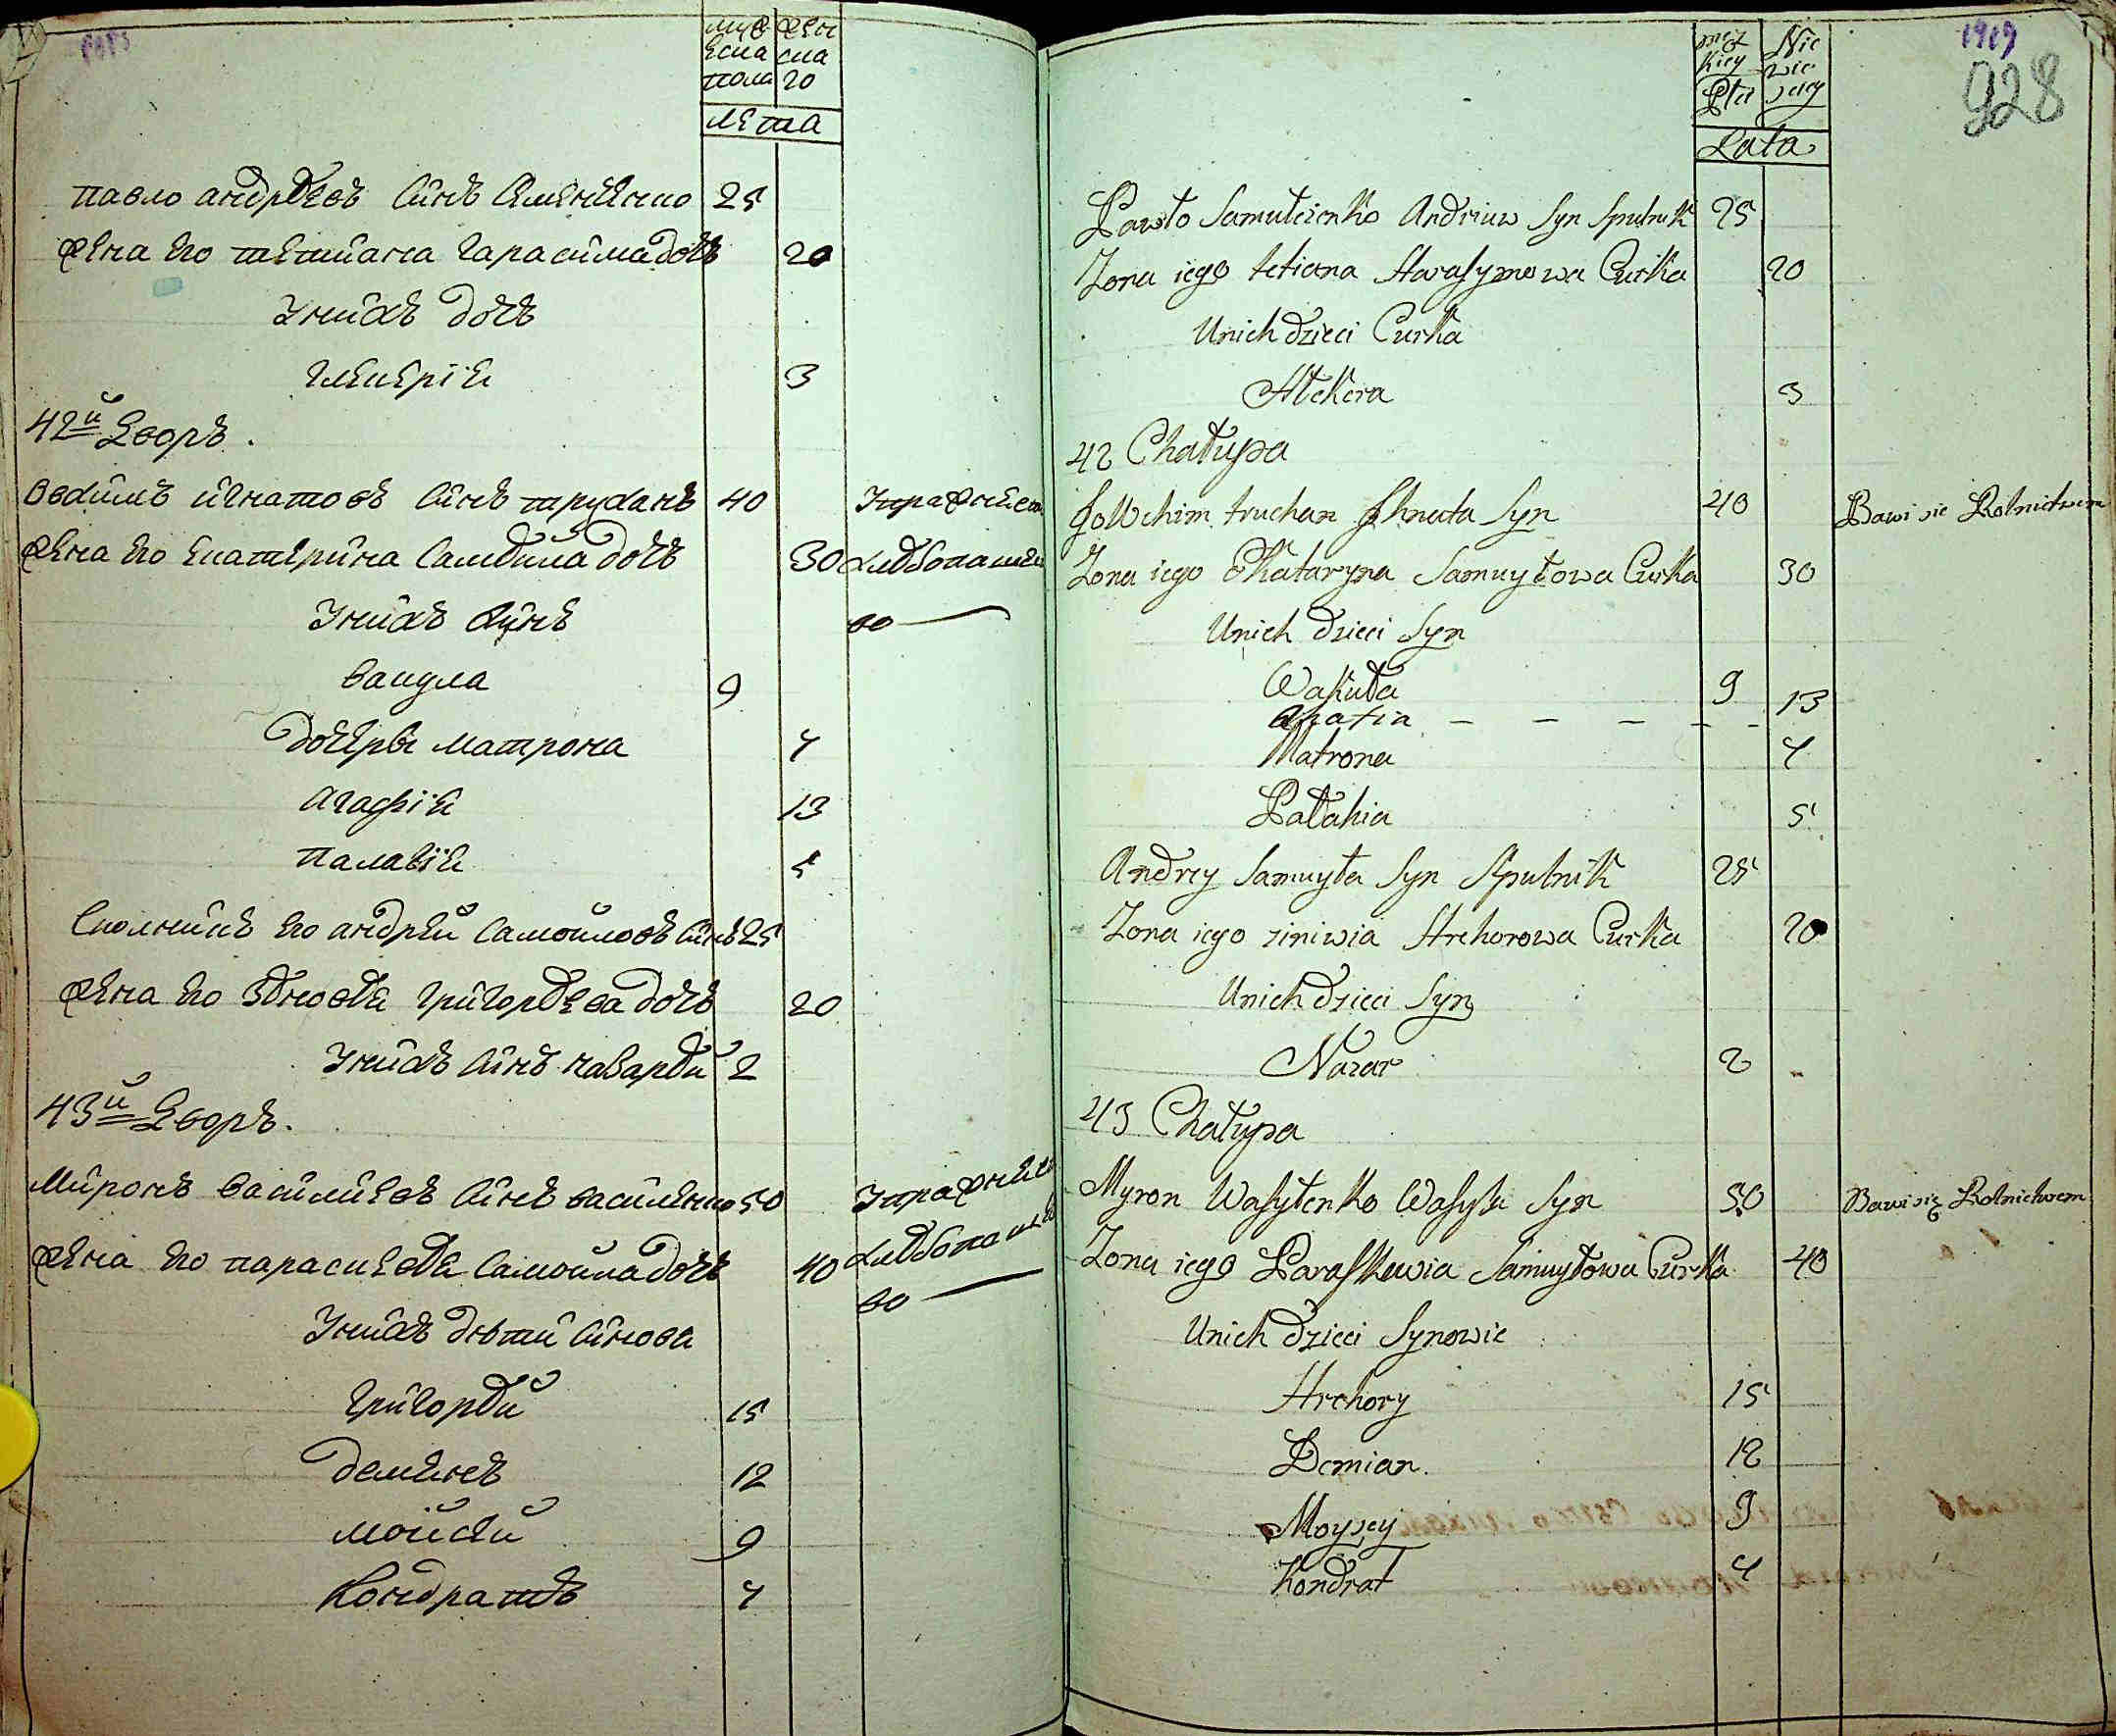 муж
еска
пола
жен
ска
го
лета
павло андрѣевъ синъ
жена его тетиана гарасима дочъ
25
20
Унихъ дочъ
гликерiя
3
42й Дворъ.
овхимъ игнатовъ синъ труханъ 40
Упражняет
жена его екатерина самойла дочъ 30
хлѣбопашес
во
Унихъ синъ
вакула 9
дочеры матрона 4
агафiя 13
палагiя 5
Сполникъ его андрѣй самойловъ синъ 25
жена его зѣновѣя григорѣева дочъ 20
Унихъ синъ назарѣй 2
43й Дворъ.
Миронъ василиевъ синъ василенко 50
Упражняет
жена его параскевѣя самойла дочъ 40
хлѣбопашес
во
Унихъ дѣти синова
григорѣй 15
демянъ 12
мойсѣй 9
кондратъ 4
męz
kiey
Płci
Nie
wie
sciey
Lata
1919
928
Pawło Samulczenko Andriuw Syn Sputnik 25
Zona iego tetiana Harasymowa Curka 20
Unich dzieci Curka
Hlekera 3
42 Chałupa
Jowchim truchan Ihnata Syn 40 Bawi sie Rolnictwem
Zona iego Katarzyna Samuyłowa Curka 30
Unich dzieci Syn
Wakuła 9
ahafia — — — — - 13
Matrona 4
Pałahia 5
Andrey Samuyła Syn Sputnik 25
Zona iego ziniwia Hrehorowa Curka 20
Unich dzieci Syn
Nazar 2
43 Chałupa
Myron Wasylenko Wasyla Syn 50 Bawi się Rolnictwem
Zona iego Paraskewia Samuyłowa Curka 40
Unich dzieci Synowie
Hrehory 15
Demian. 12
Moysey 9
Kondrat 4